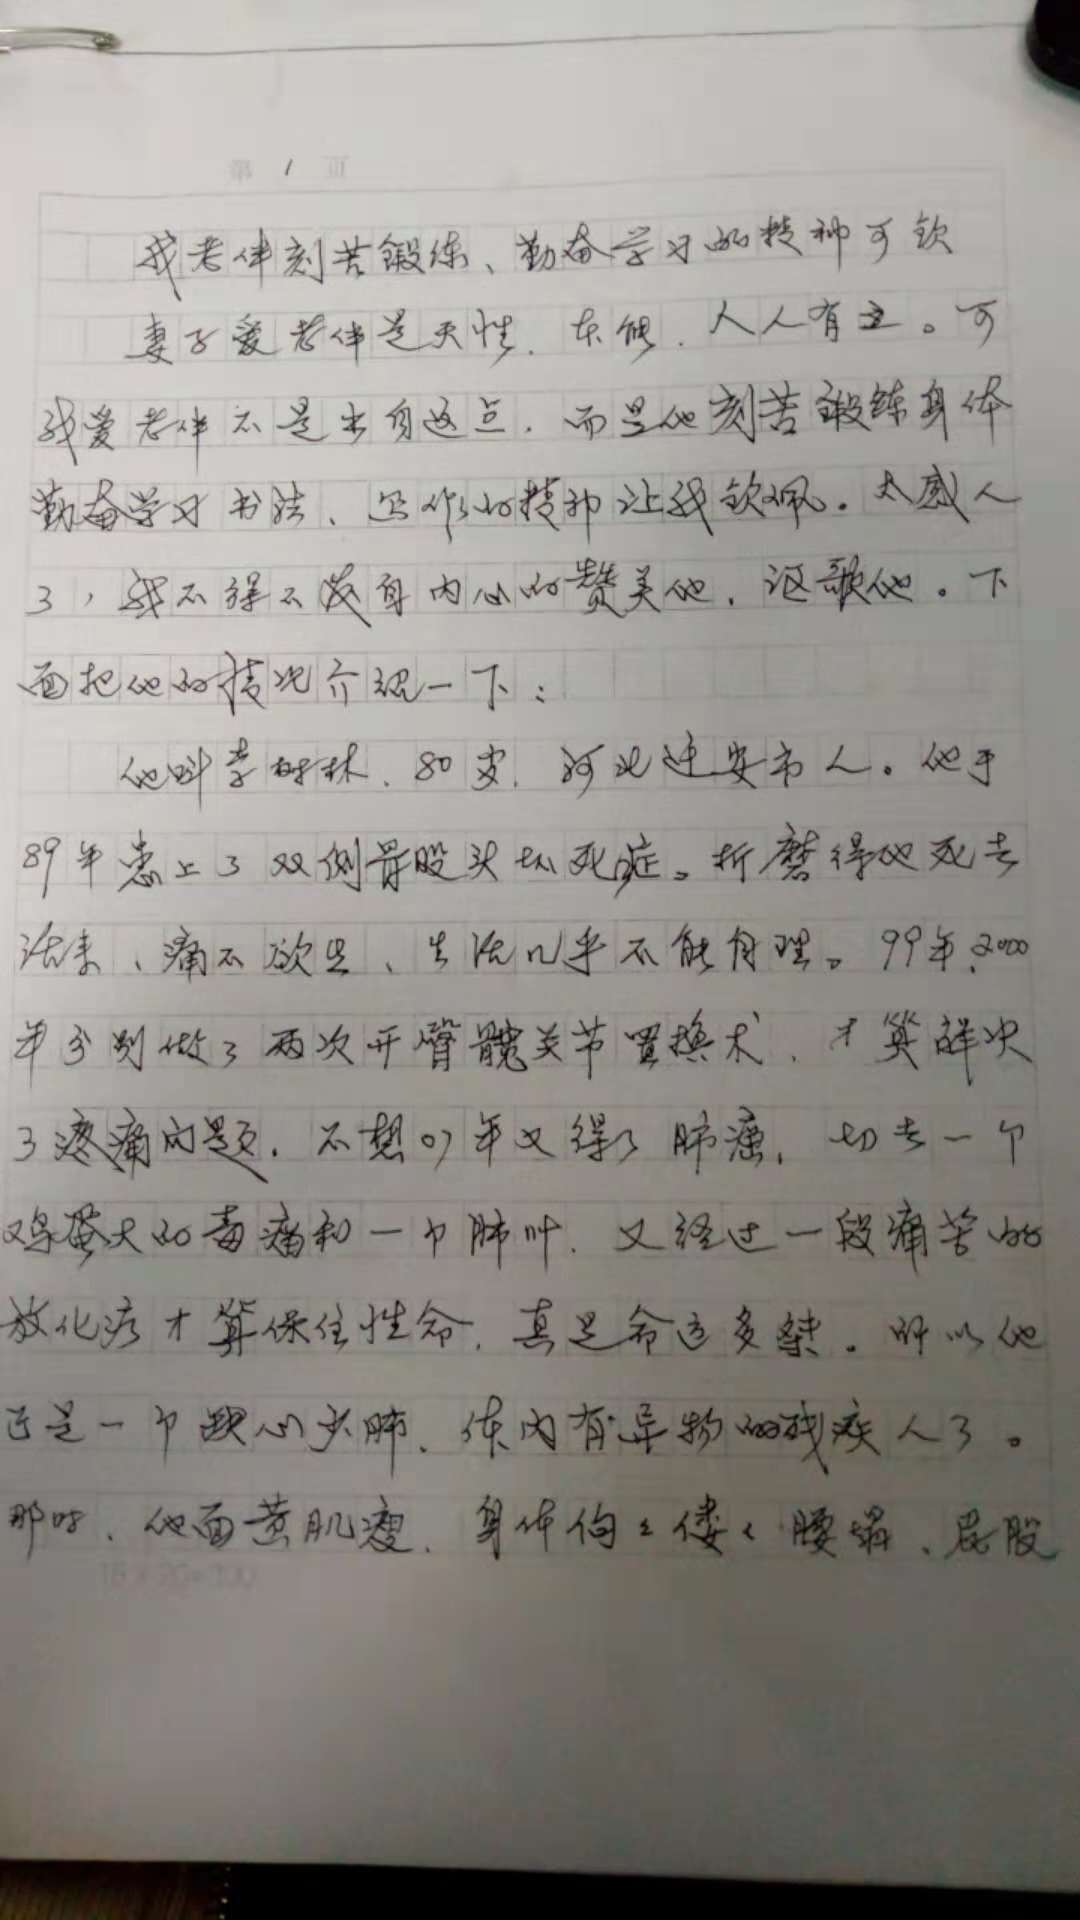 第 1 页
我老伴刻苦锻练、勤奋学习的精神可钦
妻子爱老伴是天性、本能、人人有之。可
我爱老伴不是出自这点，而是他刻苦锻练身体
勤奋学习书法、写作的精神让我钦佩。太感人
了，我不得不发自内心的赞美他，讴歌他。下
面把他的情况介绍一下：
他叫李树林，80岁，河北迁安市人。他于
89年患上了双侧骨股头坏死症。折磨得他死去
活来、痛不欲生、生活几乎不能自理。99年、2000
年分别做了两次开臀髋关节置换术，才算解决
了疼痛问题。不想07年又得了肺癌，切去一个
鸡蛋大的毒瘤和一个肺叶，又经过一段痛苦的
放化疗才算保住性命，真是命运多桀。所以他
已是一个缺心少肺、体内有异物的残疾人了。
那时、他面黄肌瘦，身体佝佝偻偻腰塌、屁股
15×20=300